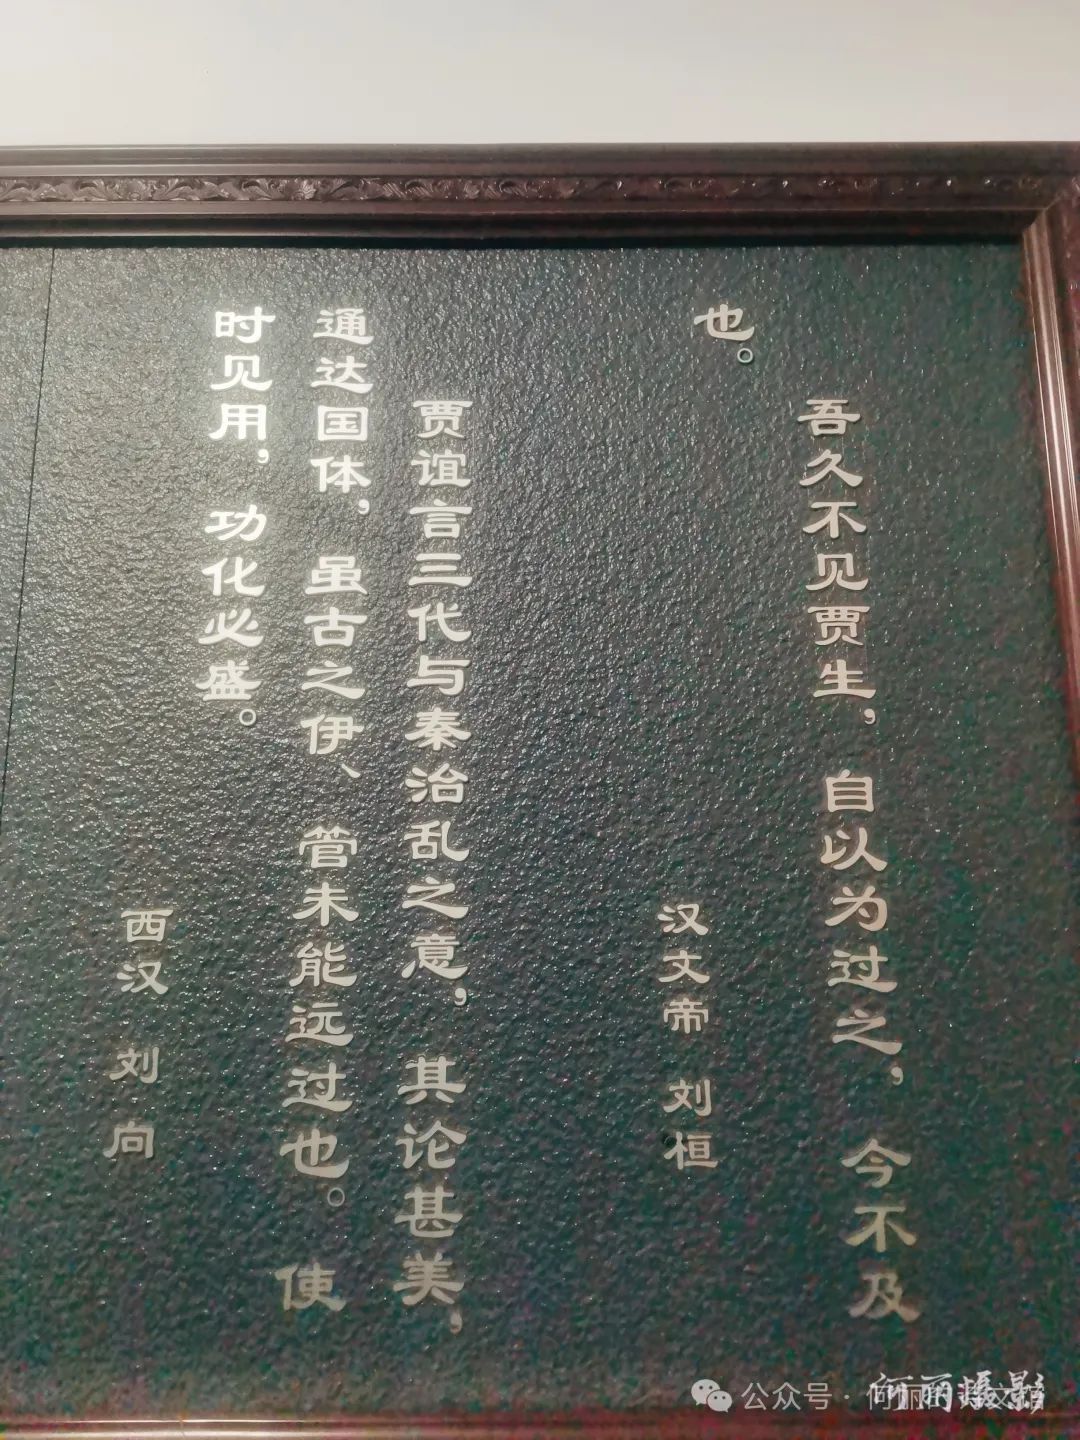 吾久不见贾生，自以为过之，今不及
也。
汉文帝 刘桓
贾谊言三代与秦治乱之意，其论甚美，
通达国体，虽古之伊、管未能远过也。使
时见用，功化必盛。
西汉 刘向
何丽摄影
公众号·何丽